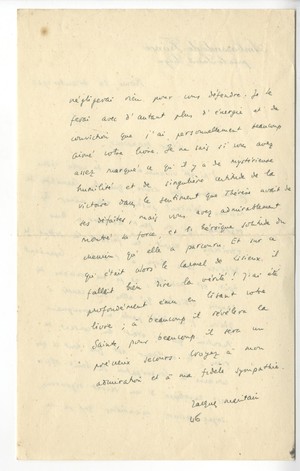 négligerai rien pour vous défendre. Je le
ferai avec d'autant plus d'énergie et de
conviction que j'ai personnellement beaucoup
aimé votre livre. Je ne sais si vous avez
assez marqué ce qu'il y a de mystérieuse
humilité et de singulière certitude de la
victoire dans le sentiment que Thérèse avait de
ses défaites, mais vous avez admirablement
montré sa force, et l'héroïque solitude du
chemin qu'elle a parcouru. Et sur ce
qu'était alors le Carmel de Lisieux, il
fallait bien dire la vérité ! J'ai été
profondément ému en lisant votre
livre ; à beaucoup il révélera la
Sainte, pour beaucoup il sera un
précieux secours. Croyez à mon
admiration et à ma fidèle sympathie.
Jacques Maritain